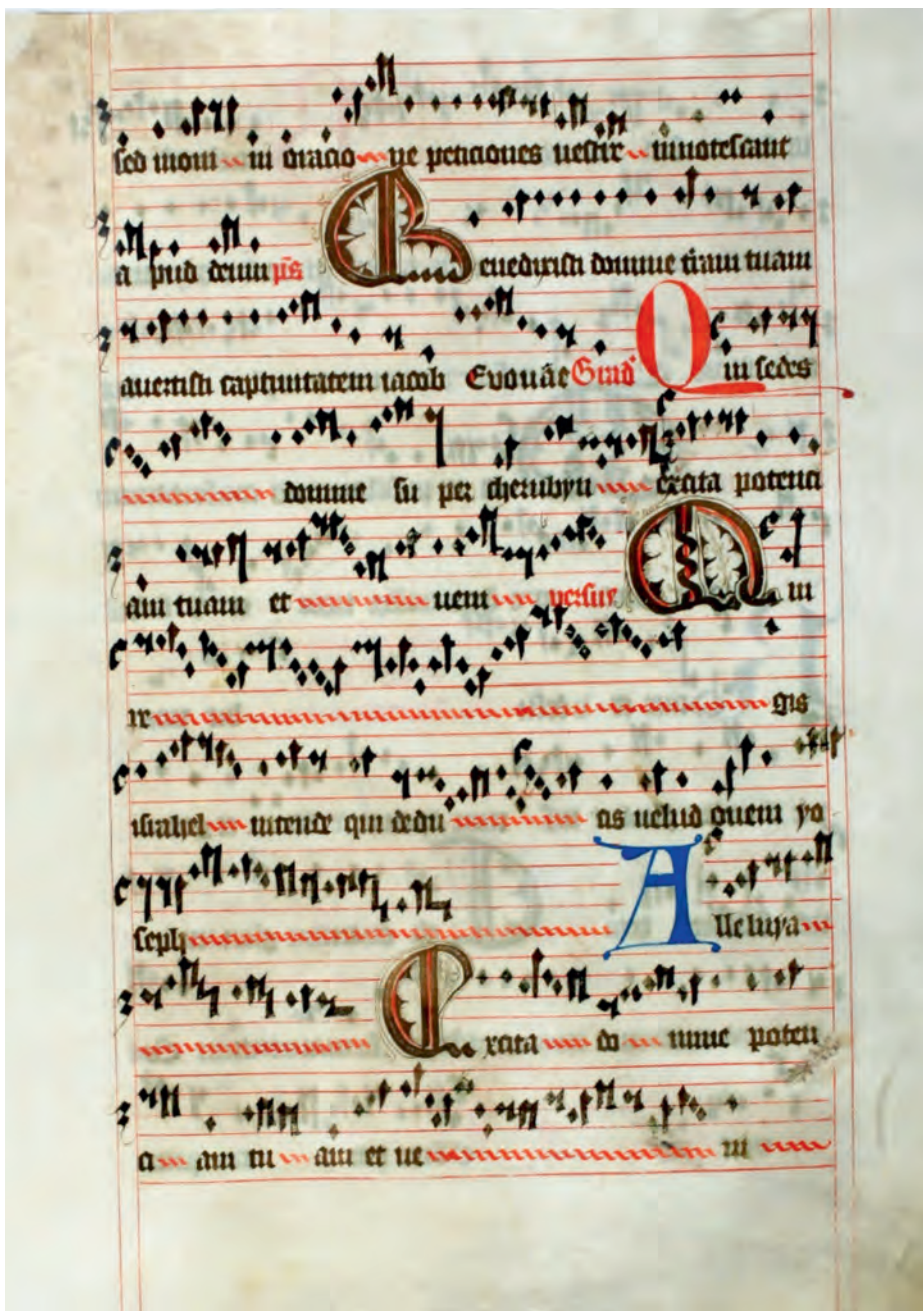 sed in om ni oracio ne peticiones uestre innotescant
a pud deum ps Benedixisti domine tram tuam
auertisti captiuitatem iacob Evouae Grad Qui sedes
domine su per cherubyn excita potenci
am tuam et ueni versus Qui
re gis
israhel intende qui dedu cis uelud ouem yo
seph Alleluya
Excita do mine poten
ci am tu am et ue ni